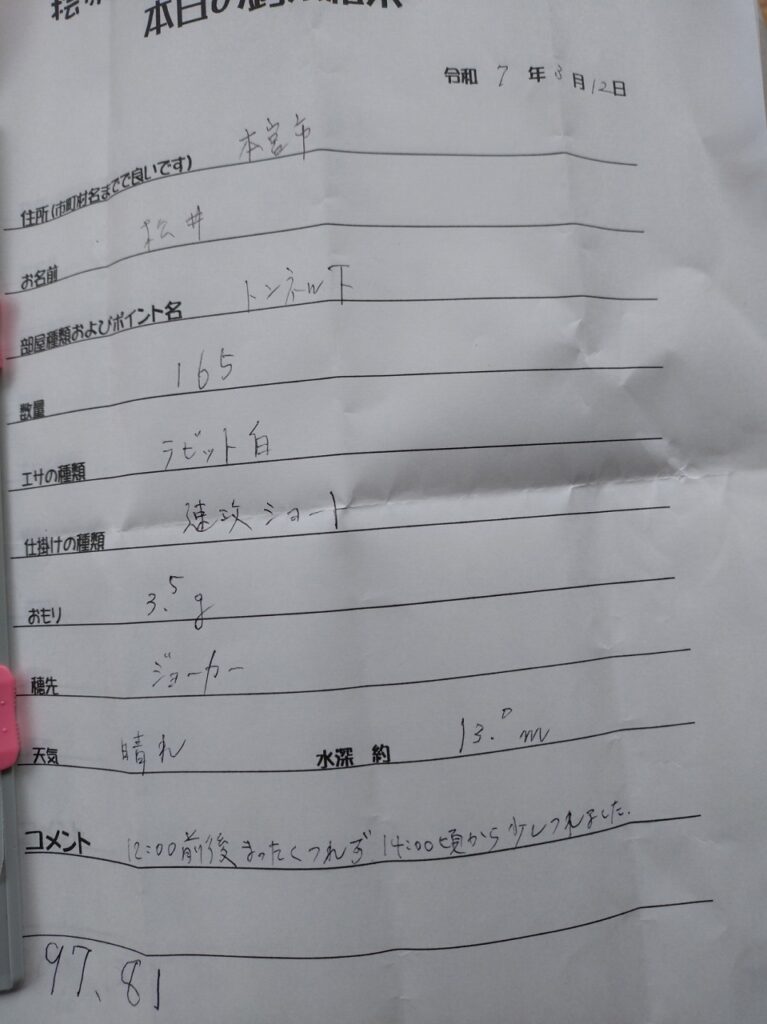 本日の釣果結果
令和 7 年 3 月 12 日
住所(市町村名までで良いです) 本宮市
お名前 松井
部屋種類およびポイント名 トンネル下
数量 165
エサの種類 ラビット白
仕掛けの種類 速攻ショート
おもり 3.5g
穂先 ジョーカー
天気 晴れ 水深 約 13.0m
コメント 12:00前後まったくつれず 14:00頃から少しつれました.
97、81